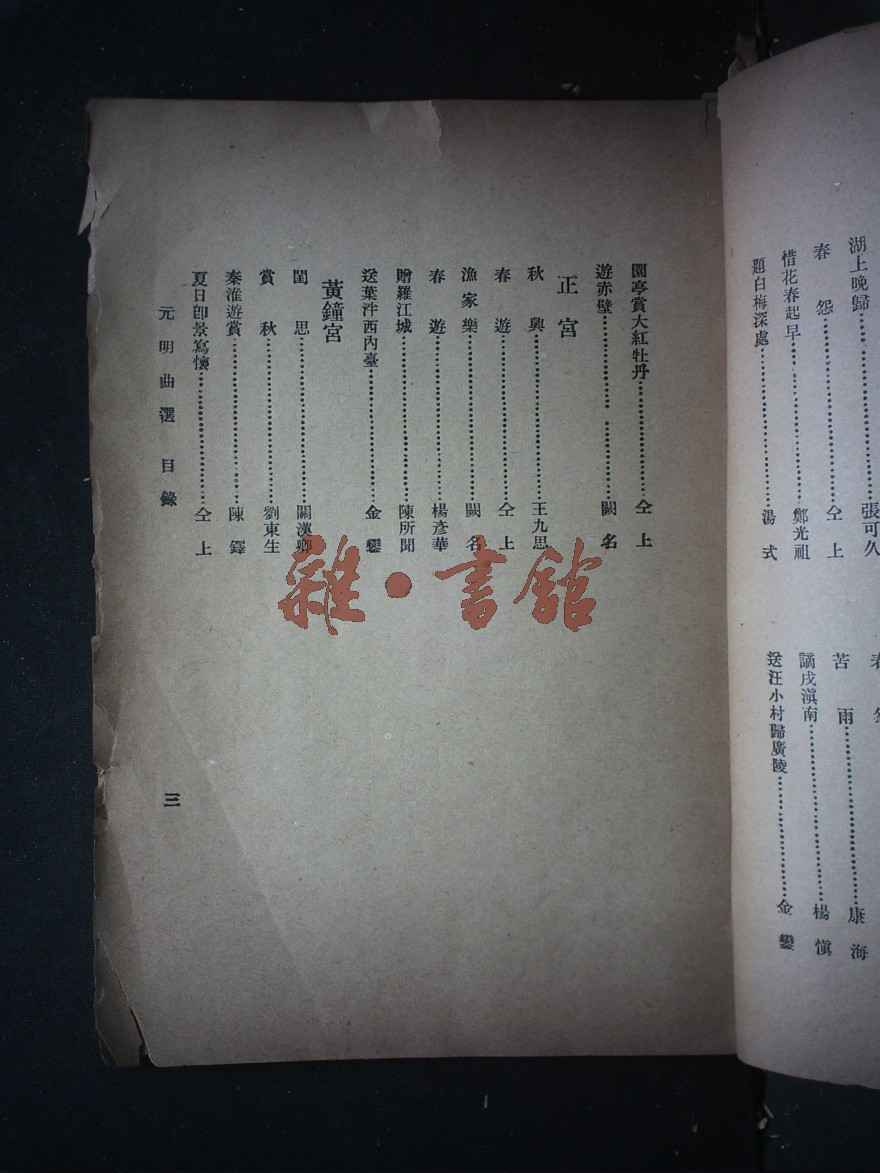 湖上晚歸……張可久
春怨……仝上
惜花春起早……鄭光祖
題白梅深處……湯式
苦雨……康海
謫戍滇南……楊愼
送汪小村歸廣陵……金鑾
園亭賞大紅牡丹……仝上
遊赤壁……闕名
正宮
秋興……王九思
春遊……仝上
漁家樂……闕名
春遊……楊彥華
贈羅江城……陳所聞
送葉泮西內臺……金鑾
黃鐘宮
閨思……關漢卿
賞秋……劉東生
秦淮遊賞……陳鐸
夏日卽景寫懷……仝上
元明曲選 目錄
三
雜·書館